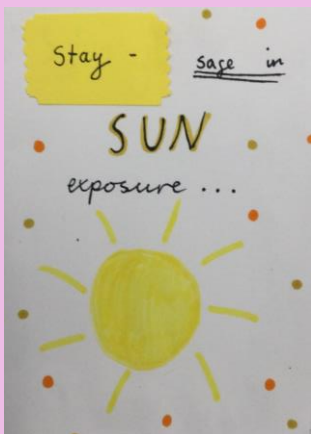 Stay - sage in
SUN
exposure ...